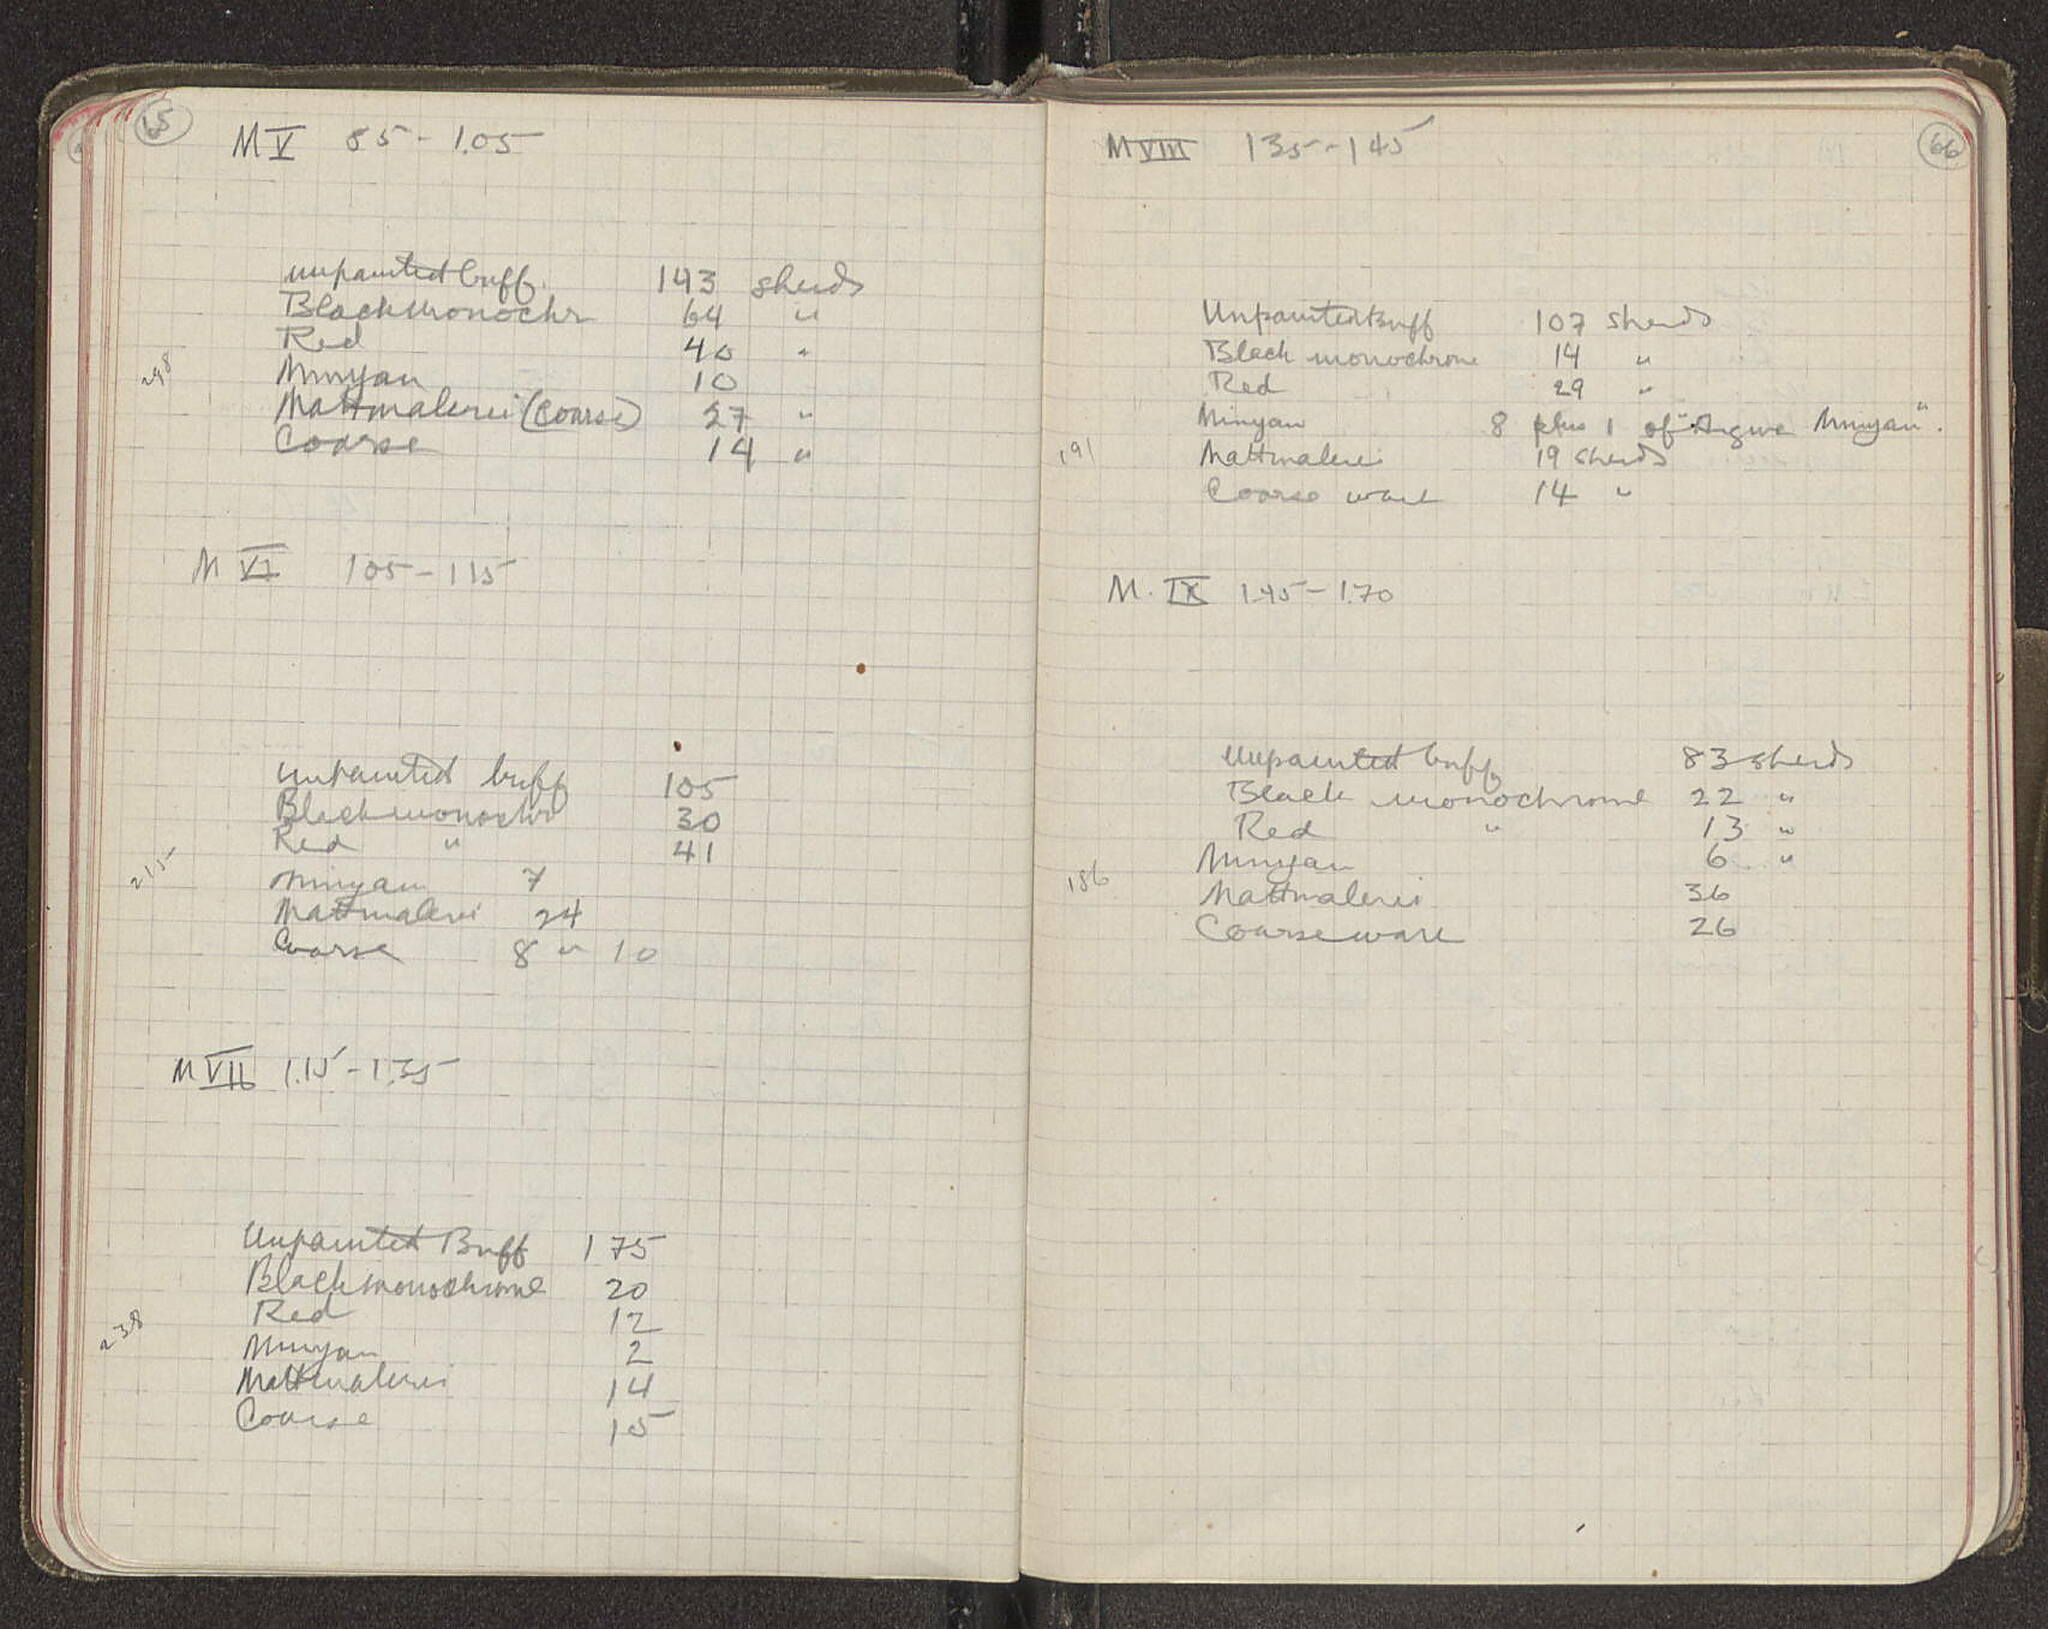 65
M V 85 - 1.05
unpainted buff. 143 sherds
Black monochr 64 "
Red 40 "
298
Minyan 10
Mattmalerei (coarse) 27 "
Coarse 14 "
M VI 105 - 115
unpainted buff 105
Black monochr 30
Red " 41
215
Minyan 7
Mattmalerei 24
Coarse 8 or 10
M VII 1.15 - 1.35
Unpainted Buff 175
Black monochrome 20
Red 12
238
Minyan 2
Mattmalerei 14
Coarse 15
66
M VIII 135 - 145
Unpainted Buff 107 sherds
Black monochrome 14 "
Red 29 "
Minyan 8 plus 1 of "Argive Minyan".
191
Mattmalerei 19 sherds
Coarse ware 14 "
M. IX 1.45 - 1.70
Unpainted buff 83 sherds
Black monochrome 22 "
Red " 13 "
Minyan 6 "
186
Mattmalerei 36
Coarse ware 26